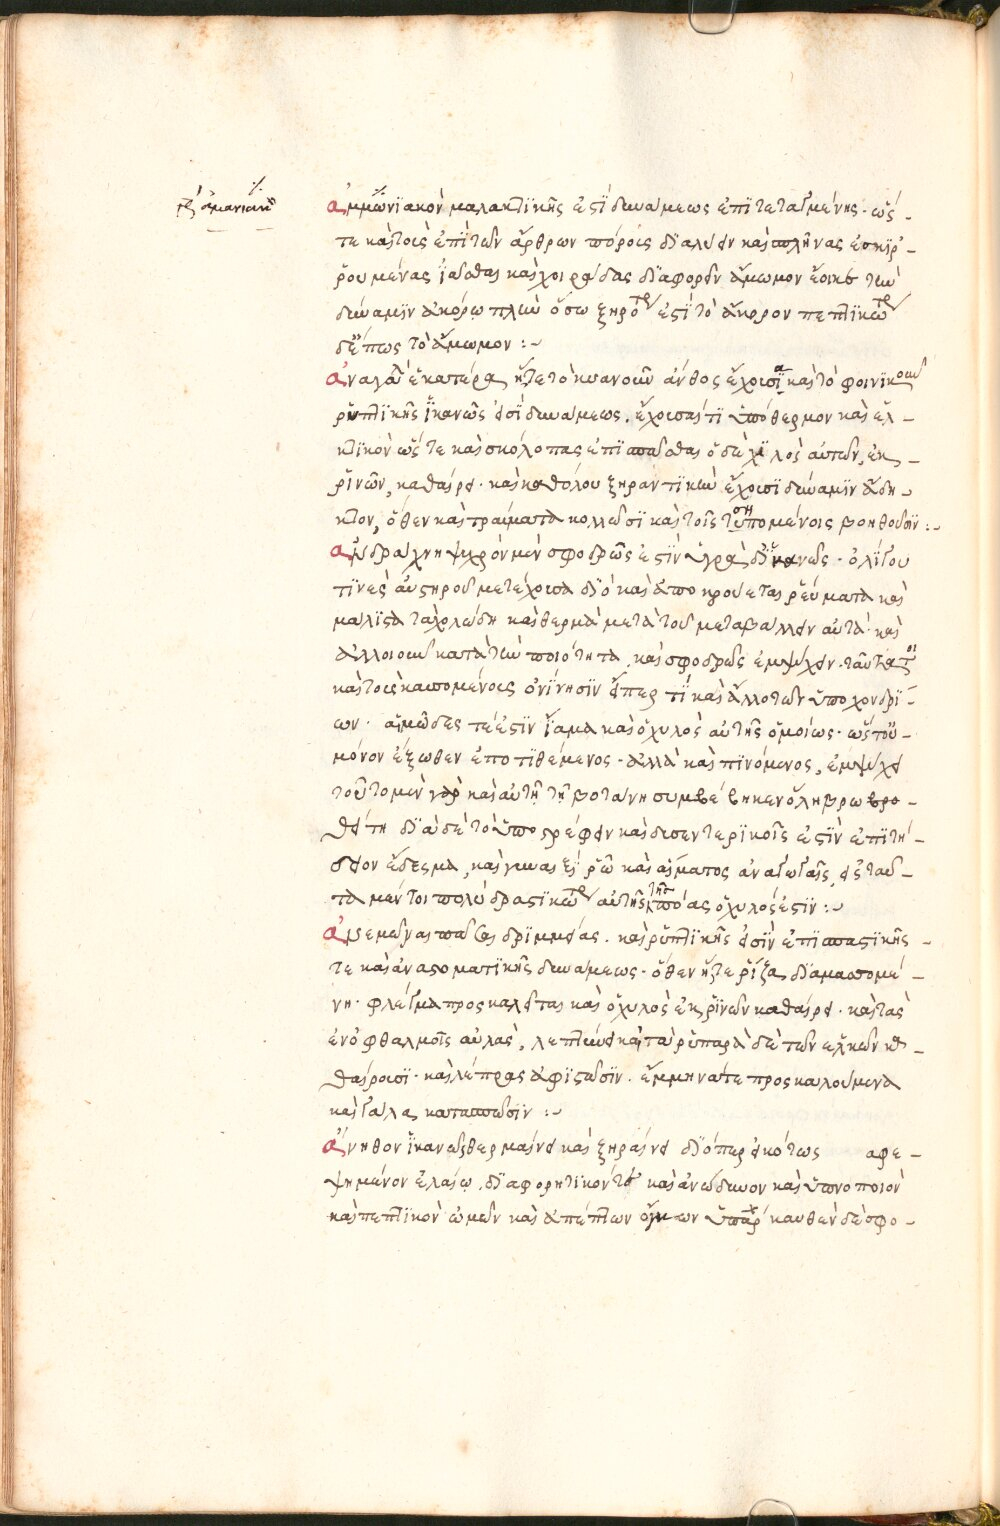 ἀμμωνϊακὸν μαλακτϊκῆς ἐστὶ δυνάμεως ἐπϊτεταγμένης· ὥσ
τε καὶ τοῖς ἐπὶ τῶν ἄρθρων πόροις δϊαλύειν καὶ σπλῆνας ἐσκϊρ
ρουμένας ἰᾶσθαι καὶ χοιράδας δϊαφορεῖν ἄμωμον ἔοικε τὴν
δύναμϊν ἀκόρῳ πλὴν ὅσω ξηρότερον ἐστὶ τὸ ἄκορον πεπτϊκώτερον
δέ πως τὸ ἄμωμον :~
ἀναγαλλὶς ἑκατέρα ἥτε τὸ κυανοῦν ἄνθος ἔχουσα καὶ τὸ φοινϊκοῦν
ῥυπτϊκῆς ἱκανῶς εἰσὶ δυνάμεως, ἔχουσαί τϊ ὑπόθερμον καὶ ἑλ
κτϊκὸν ὥστε καὶ σκόλοπας ἐπϊσπᾶσθαι ὁ δὲ χϊλὸς αὐτῶν, ἐκ
ῥϊνῶν, καθαίρει· καὶ καθόλου ξηραντϊκὴν ἔχουσϊ δύναμϊν ἄδη
κτον, ὅθεν καὶ τραύματα κολλῶσϊ καὶ τοῖς σηπομένοις βοηθοῦσϊν :~
ἀνδράχνη ψυχρὸν μὲν σφοδρῶς ἐστϊν ὑγρὰ δ' ἱκανῶς· ὀλίγου
τϊνὸς αὐστηροῦ μετέχουσα δϊὸ καὶ ἀποκρούεται ῥεύματα καὶ
μάλϊστα τὰ χολώδη καὶ θερμὰ μετὰ τοῦ μεταβάλλειν αὐτὰ καὶ
ἀλλοιοῦν κατὰ τὴν ποιότητα, καὶ σφοδρῶς ἐμψύχειν· ταῦτά τοι
καὶ τοῖς καιομένοις ὀνίνησϊν εἴπερ τϊ καὶ ἄλλο τῶν ὑποχονδρϊ
ων· αἱμωδίας τέ ἐστϊν ἴαμα καὶ ὁ χυλὸς αὐτῆς ὁμοίως· ὥστ' οὐ
μόνον ἔξωθεν ἐποτϊθέμενος· ἀλλὰ καὶ πϊνόμενος, ἐμψύχει
τοῦτο μὲν γὰρ καὶ αὐτῇ τῇ βοτάνη συμβέβηκεν ὅλη βρω
θείση δϊὰ δὲ τὸ ὑποστρέφειν καὶ δυσεντερϊκοῖς ἐστϊν ἐπϊτή
δειον ἔδεσμα, καὶ γυναιξὶ ῥῶ καὶ αἵματος ἀναγωγαῖς, εἰς ταῦ
τα μέντοι πολὺ δραστϊκώτερον αὐτῆς τῆς πόας ὁ χυλός ἐστϊν :~
ἀνεμῶναι πᾶσαι δρϊμμείας. καὶ ῥυπτϊκῆς εἰσϊν ἐπϊσπαστϊκῆς
τε καὶ ἀναστοματϊκῆς δυνάμεως· ὅθεν ἥτε ῥίζα δϊαμασσομέ
νη· φλέγμα προσκαλεῖται καὶ ὁ χυλὸς ἐκ ῥϊνῶν καθαίρει· καὶ τὰς
ἐν ὀφθαλμοῖς οὐλὰς, λεπτύνει καὶ τὰ ῥυπαρὰ δὲ τῶν ἑλκῶν κα
θαίρουσϊ· καὶ λέπρας ἀφϊστῶσϊν. ἔμμηνά τε προσκαλούμενα
καὶ γάλα κατασπῶσϊν :~
ἄνηθον ἱκανῶς θερμαίνει καὶ ξηραίνει δϊόπερ εἰκότως ἀφε
ψημένον ἐλαίῳ, δϊαφορητϊκόν τε καὶ ἀνώδυνον καὶ ὑπνοποιὸν
καὶ πεπτϊκὸν ὠμῶν καὶ ἀπέπτων ὄγκων ὑπάρχει καυθὲν δὲ σφο